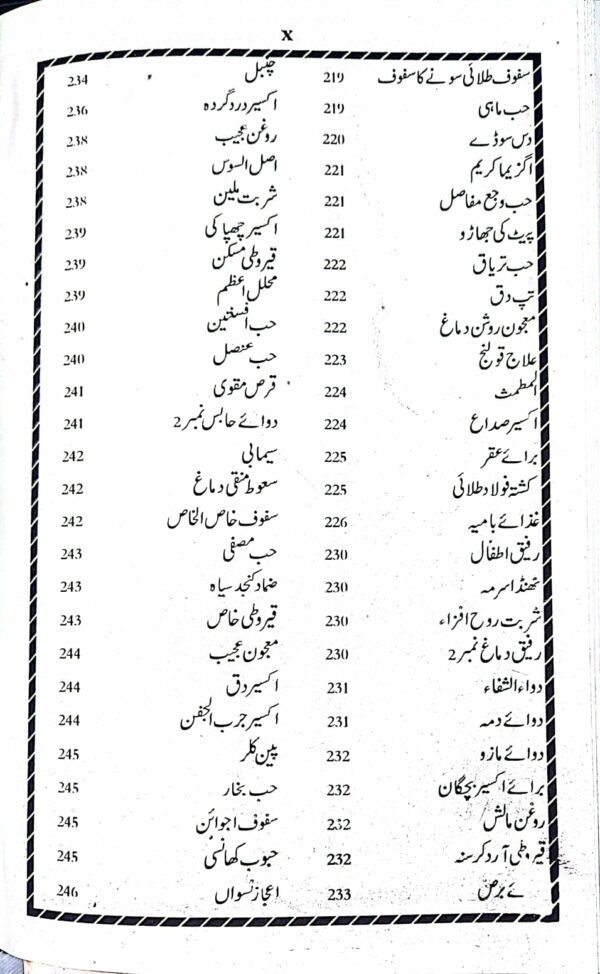 X
سفوف طلائی سونے کا سفوف 219
حب ماہی 219
دس سوڈے 220
اگزیما کریم 221
حب وجع مفاصل 221
پیٹ کی جھاڑو 221
حب تریاق 222
تپ دق 222
معجون روشن دماغ 222
علاج قولنج 223
المطمث 224
اکسیر صداع 224
برائے عقر 225
کشتہ فولاد طلائی 225
غذائے بامیہ 226
رفیق اطفال 230
ٹھنڈا سرمہ 230
شربت روح افزاء 230
رفیق دماغ نمبر 2 230
دواء الشفاء 231
دوائے دمہ 231
دوائے مازو 232
برائے اکسیر بچگان 232
روغن مالش 232
قیروطی آرد کرسنہ 232
ئے برص 233
چنبل 234
اکسیر درد گردہ 236
روغن عجیب 238
اصل السوس 238
شربت ملین 238
اکسیر چھپاکی 239
قیروطی مسکن 239
محلل اعظم 239
حب افسنتین 240
حب عنصل 240
قرص مقوی 241
دوائے حابس نمبر 2 241
سیمابی 242
سعوط منقی دماغ 242
سفوف خاص الخاص 242
حب مصفی 243
ضماد کنجد سیاہ 243
قیروطی خاص 243
معجون عجیب 244
اکسیر دق 244
اکسیر جرب الجفن 244
پین کلر 245
حب بخار 245
سفوف اجوائن 245
حبوب کھانسی 245
اعجاز نسواں 246